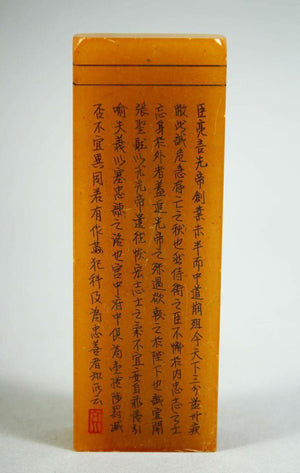 臣亮言先帝創業未半而中道崩殂今天下三分益州疲
敝此誠危急存亡之秋也然侍衛之臣不懈於內忠志之士
忘身於外者蓋追先帝之殊遇欲報之於陛下也誠宜開
張聖聽以光先帝遺德恢宏志士之氣不宜妄自菲薄引
喻失義以塞忠諫之路也宮中府中俱為壹體陟罰臧
否不宜異同若有作姦犯科及為忠善者云